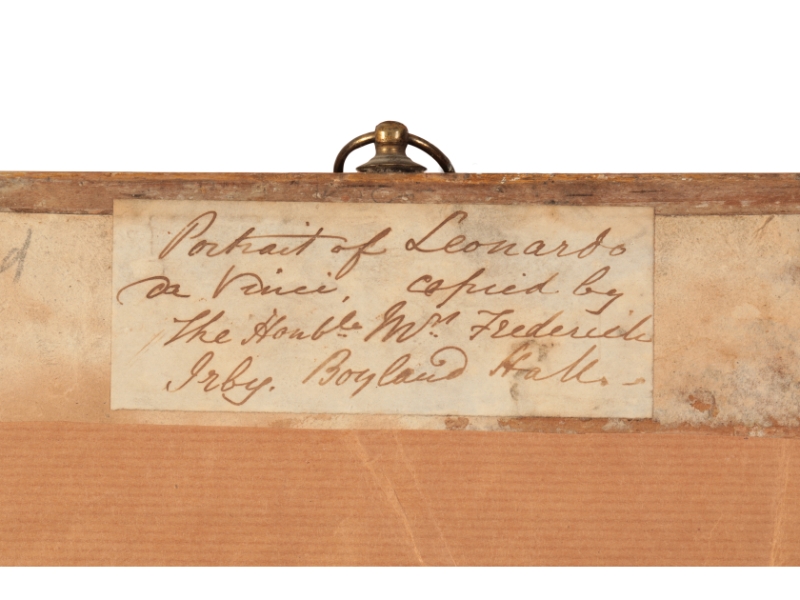 Portrait of Leonardo
da Vinci, copied by
The Honble Mrs Frederick
Irby. Boyland Hall. -
d